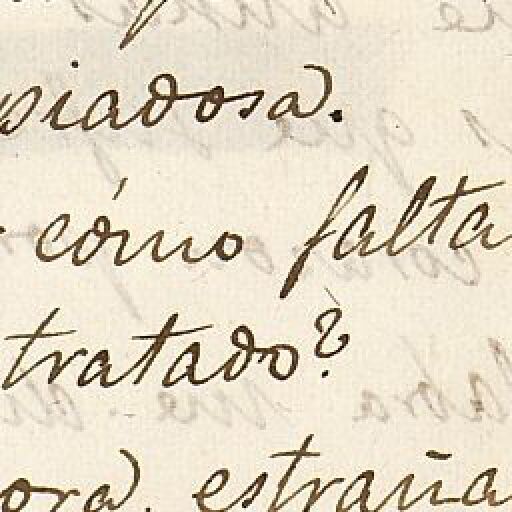 piadosa.
cómo falta
tratado?
ora, estraña